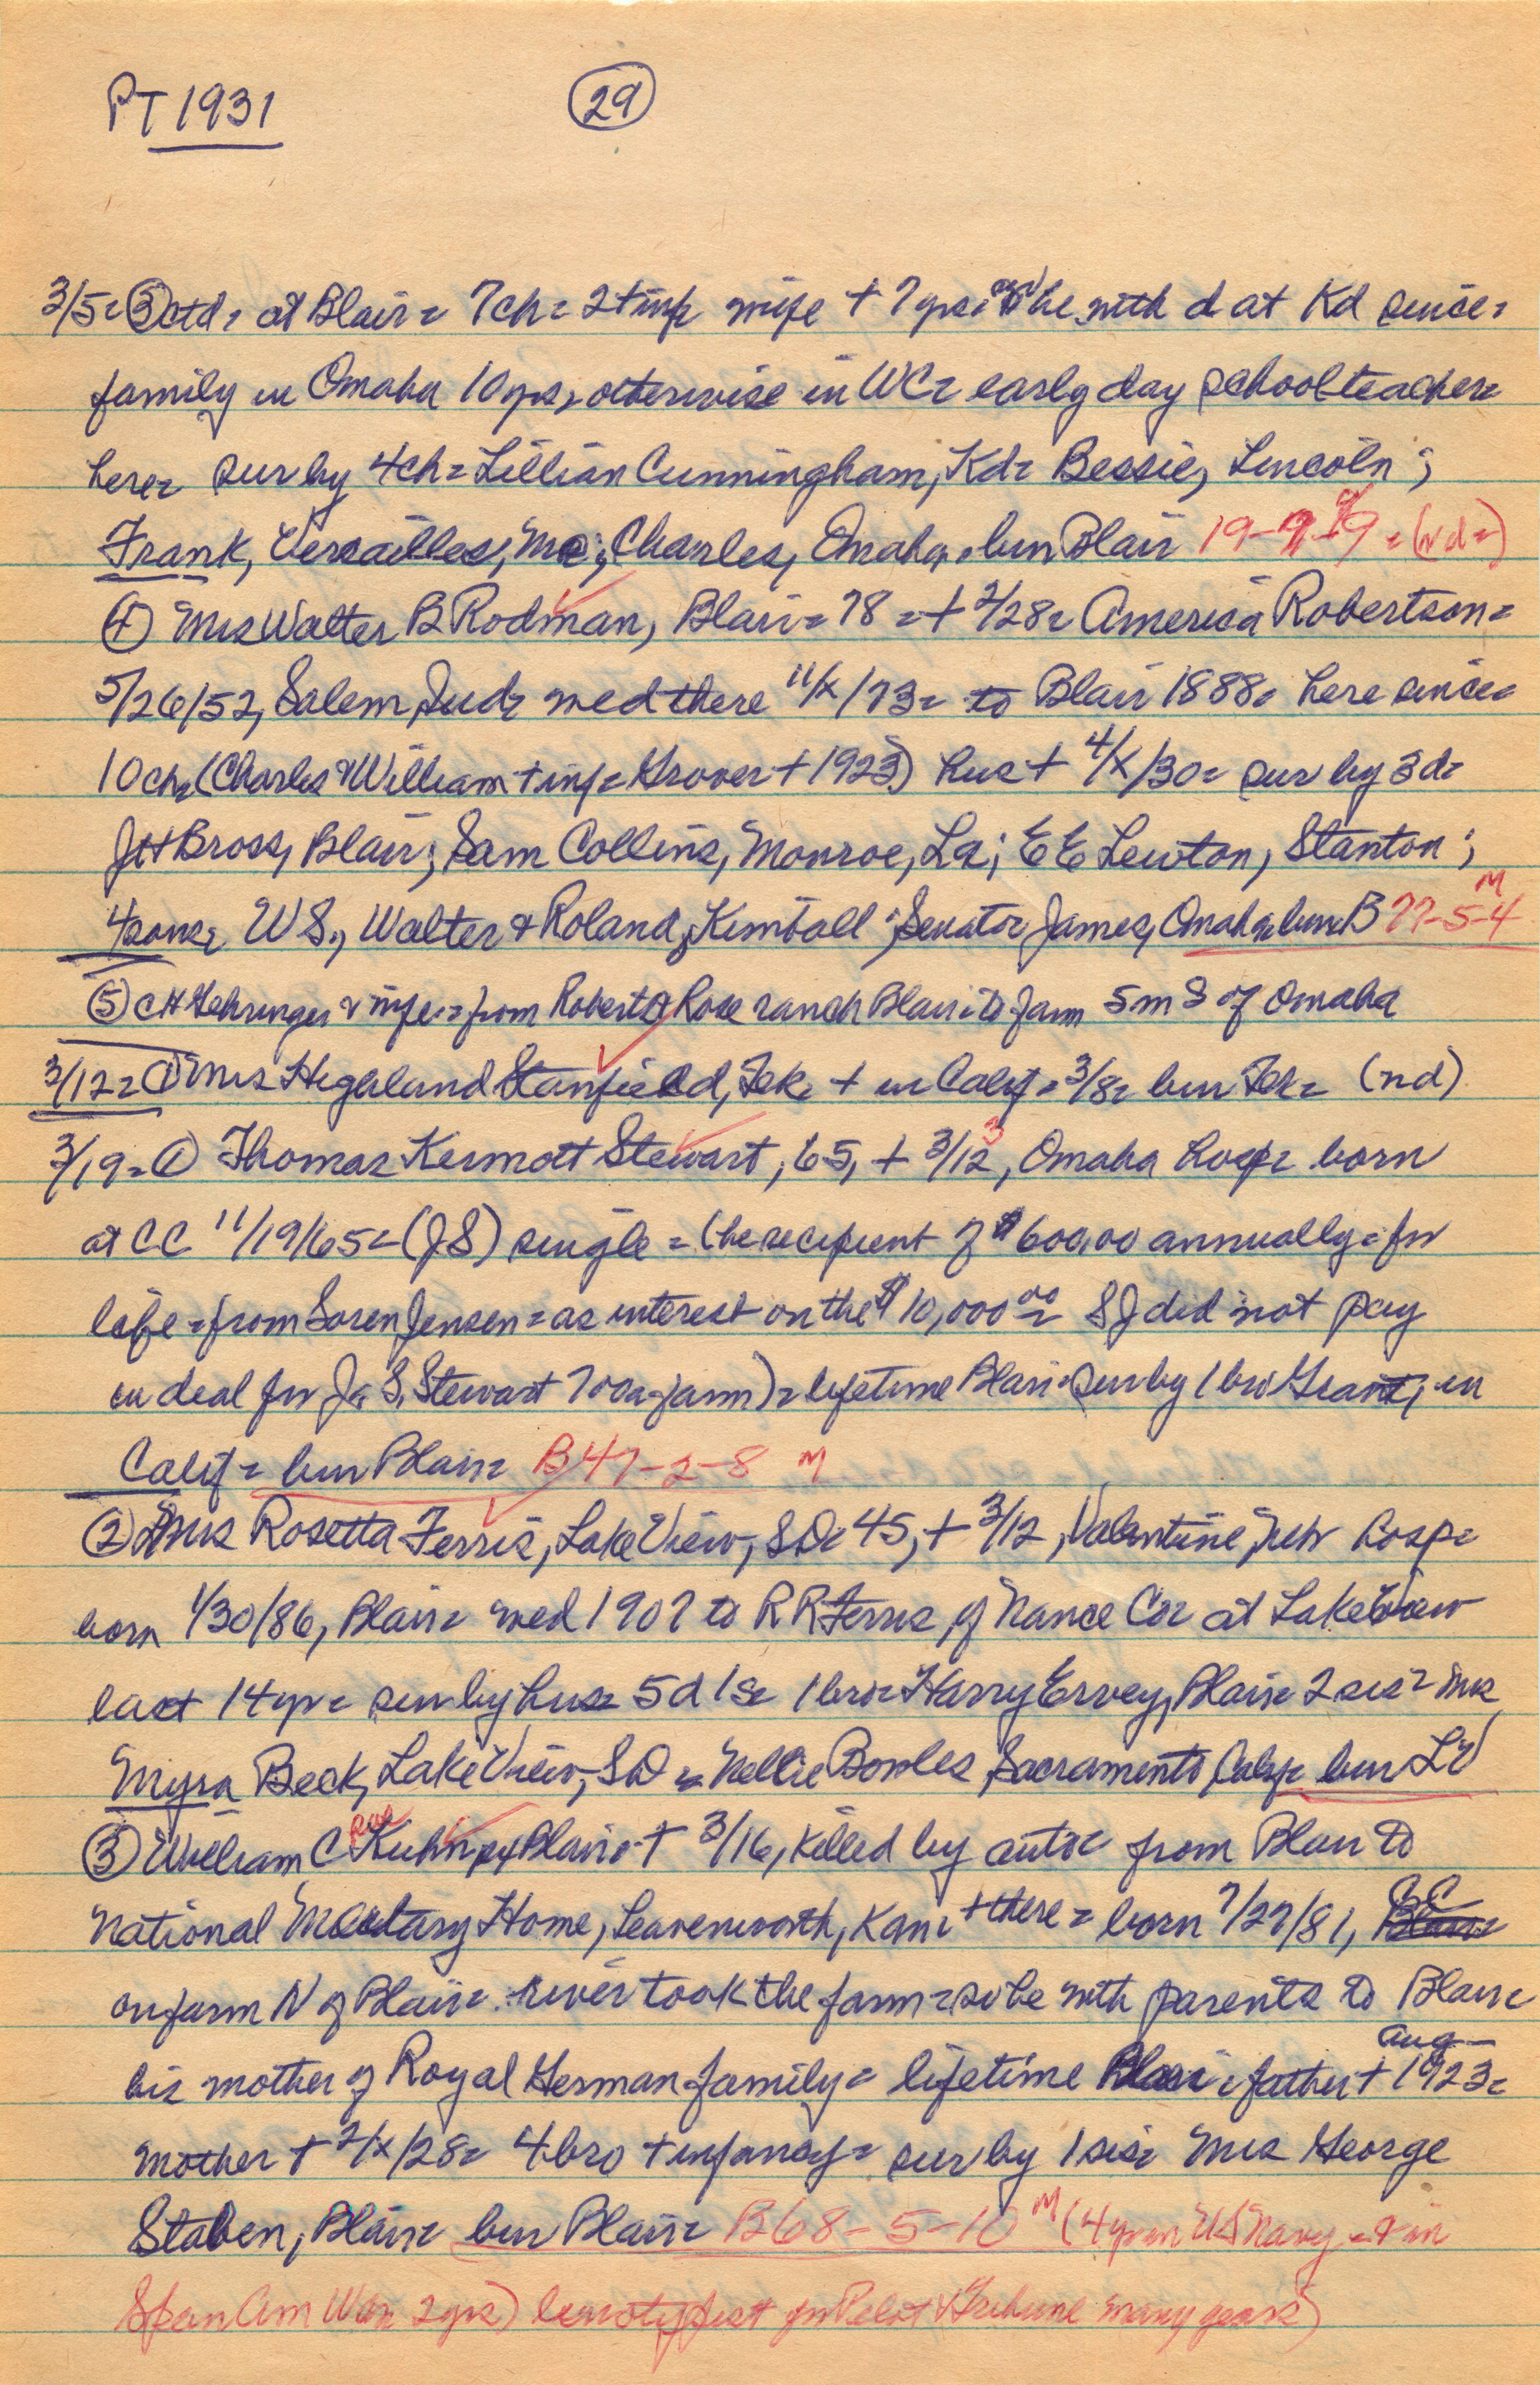 PT 1931 (29)
3/5= (3) ctd= at Blair= 7ch= 2 + inf= wife + 7 yrs= and he with d at Kd since=
family in Omaha 10 yrs, otherwise in WC= early day school teacher=
here= sur by 4ch= Lillian Cunningham, Kd= Bessie, Lincoln;
Frank, Versailles, Mo; Charles, Omaha= bur Blair 19- -9 = (nd=)
(4) Mrs Walter B Rodman, Blair= 78 = + 2/28= America Robertson=
5/26/52, Salem, Ind= med there 11/x/73= to Blair 1888= here since=
10ch= (Charles & William + inf= Grover + 1923) hus + 4/x/30= sur by 3d=
JH Bross, Blair; Sam Collins, Monroe, La; EE Lewton, Stanton;
4 sons= WS., Walter & Roland, Kimball; Senator James, Omaha= bur B 77-5-4 M
(5) CH Gehringer & wife= from Robert Rose ranch Blair= to farm 5m S of Omaha
3/12= (1) Mrs Hegelund Stanfield, Tek= + in Calif= 3/8= bur Tek= (nd)
3/19= (1) Thomas Kermott Stewart, 65, + 3/12 3, Omaha hosp= born
at CC 11/19/65= (JS) single = (he recipient of $600.00 annually= for
life= from Soren Jensen= as interest on the $10,000 00 = SJ did not pay
in deal for J. S. Stewart 700a farm)= lifetime Blair= sur by 1 bro Grant, in
Calif= bur Blair= B 47-2-8 M
(2) Mrs Rosetta Ferris, Lake View, SD= 45, + 3/12, Valentine, Neb hosp=
born 1/30/86, Blair= med 1907 to RR Ferris, of Nance Co= at Lake View
last 14 yr= sur by hus= 5d 1s= 1 bro= Harry Ervey, Blair= 2 sis= Mrs
Myra Beck, Lake View, SD = Nellie Bowles Sacramento, Calif= bur LV
(3) William C Kuhn, Blair= + 3/16, killed by auto= from Blair to
National Military Home, Leavenworth, Kan= + there = born 7/27/81, Blair= CC
on farm N of Blair= river took the farm= so he with parents to Blair=
his mother of Royal Herman family= lifetime Blair= father + Aug 1923=
mother + 2/x/28= 4 bro + infancy= sur by 1 sis= Mrs George
Staben, Blair= bur Blair= B 68-5-10 M (4 yr in US Navy = & in
Span Am War 2 yrs) linotypist for Pilot & Tribune many years)